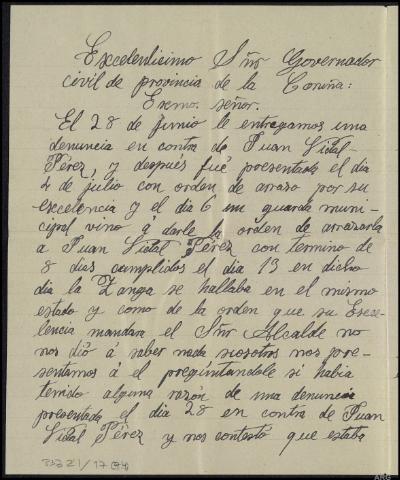 Excelentisimo Sñr Governador
civil de provincia de la Coruña:
Exmo. señor.
El 28 de Junio le entregamos una
denuncia en contra de Juan Vidal
Pérez, y después fué presentada el dia
2 de julio con orden de arraso por su
excelencia y el dia 6 un guarda muni-
cipal vino á darle la orden de arrasarla
a Juan Vidal Pérez con termino de
8 dias cumplidos el dia 13 en dicho
dia la Zanga se hallaba en el mismo
estado y como de la orden que su Exce-
lencia mandara el Sñr Alcalde no
nos dió á saber nada nosotros nos pre-
sentamos á el pregúntandole si habia
tenido alguna razón de una denuncia
presentada el dia 28 en contra de Juan
Vidal Pérez y nos contestó que estaba
33221/17
ARG